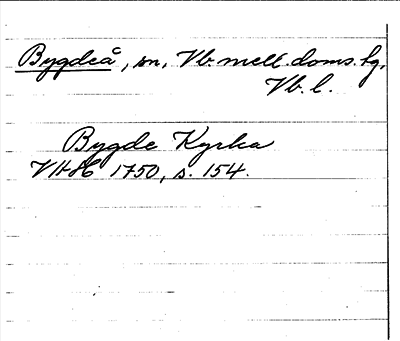 Bygdeå, sn, Vb. mell. doms. hg,
Vb. l.
Bygde Kyrka
VHAH 1750, s. 154.